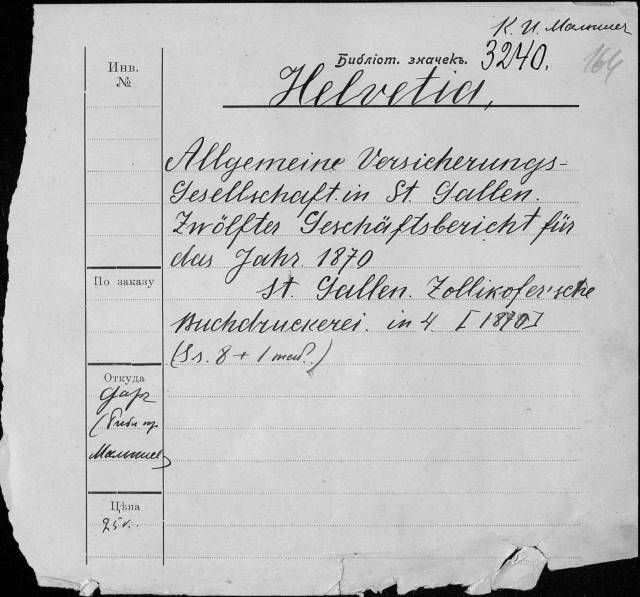 К. И. Малышев
Инв.
№
Библіот. значекъ. 3240.
164
Helvetia,
Allgemeine Versicherungs-
Gesellschaft in St. Gallen.
Zwölfter Geschäftsbericht für
das Jahr 1870
По заказу
St. Gallen. Zollikofer'sche
Buchdruckerei. in 4 [1870]
(Ss. 8 + 1 таб.)
Откуда
Даръ
Малышев
Цѣна
25